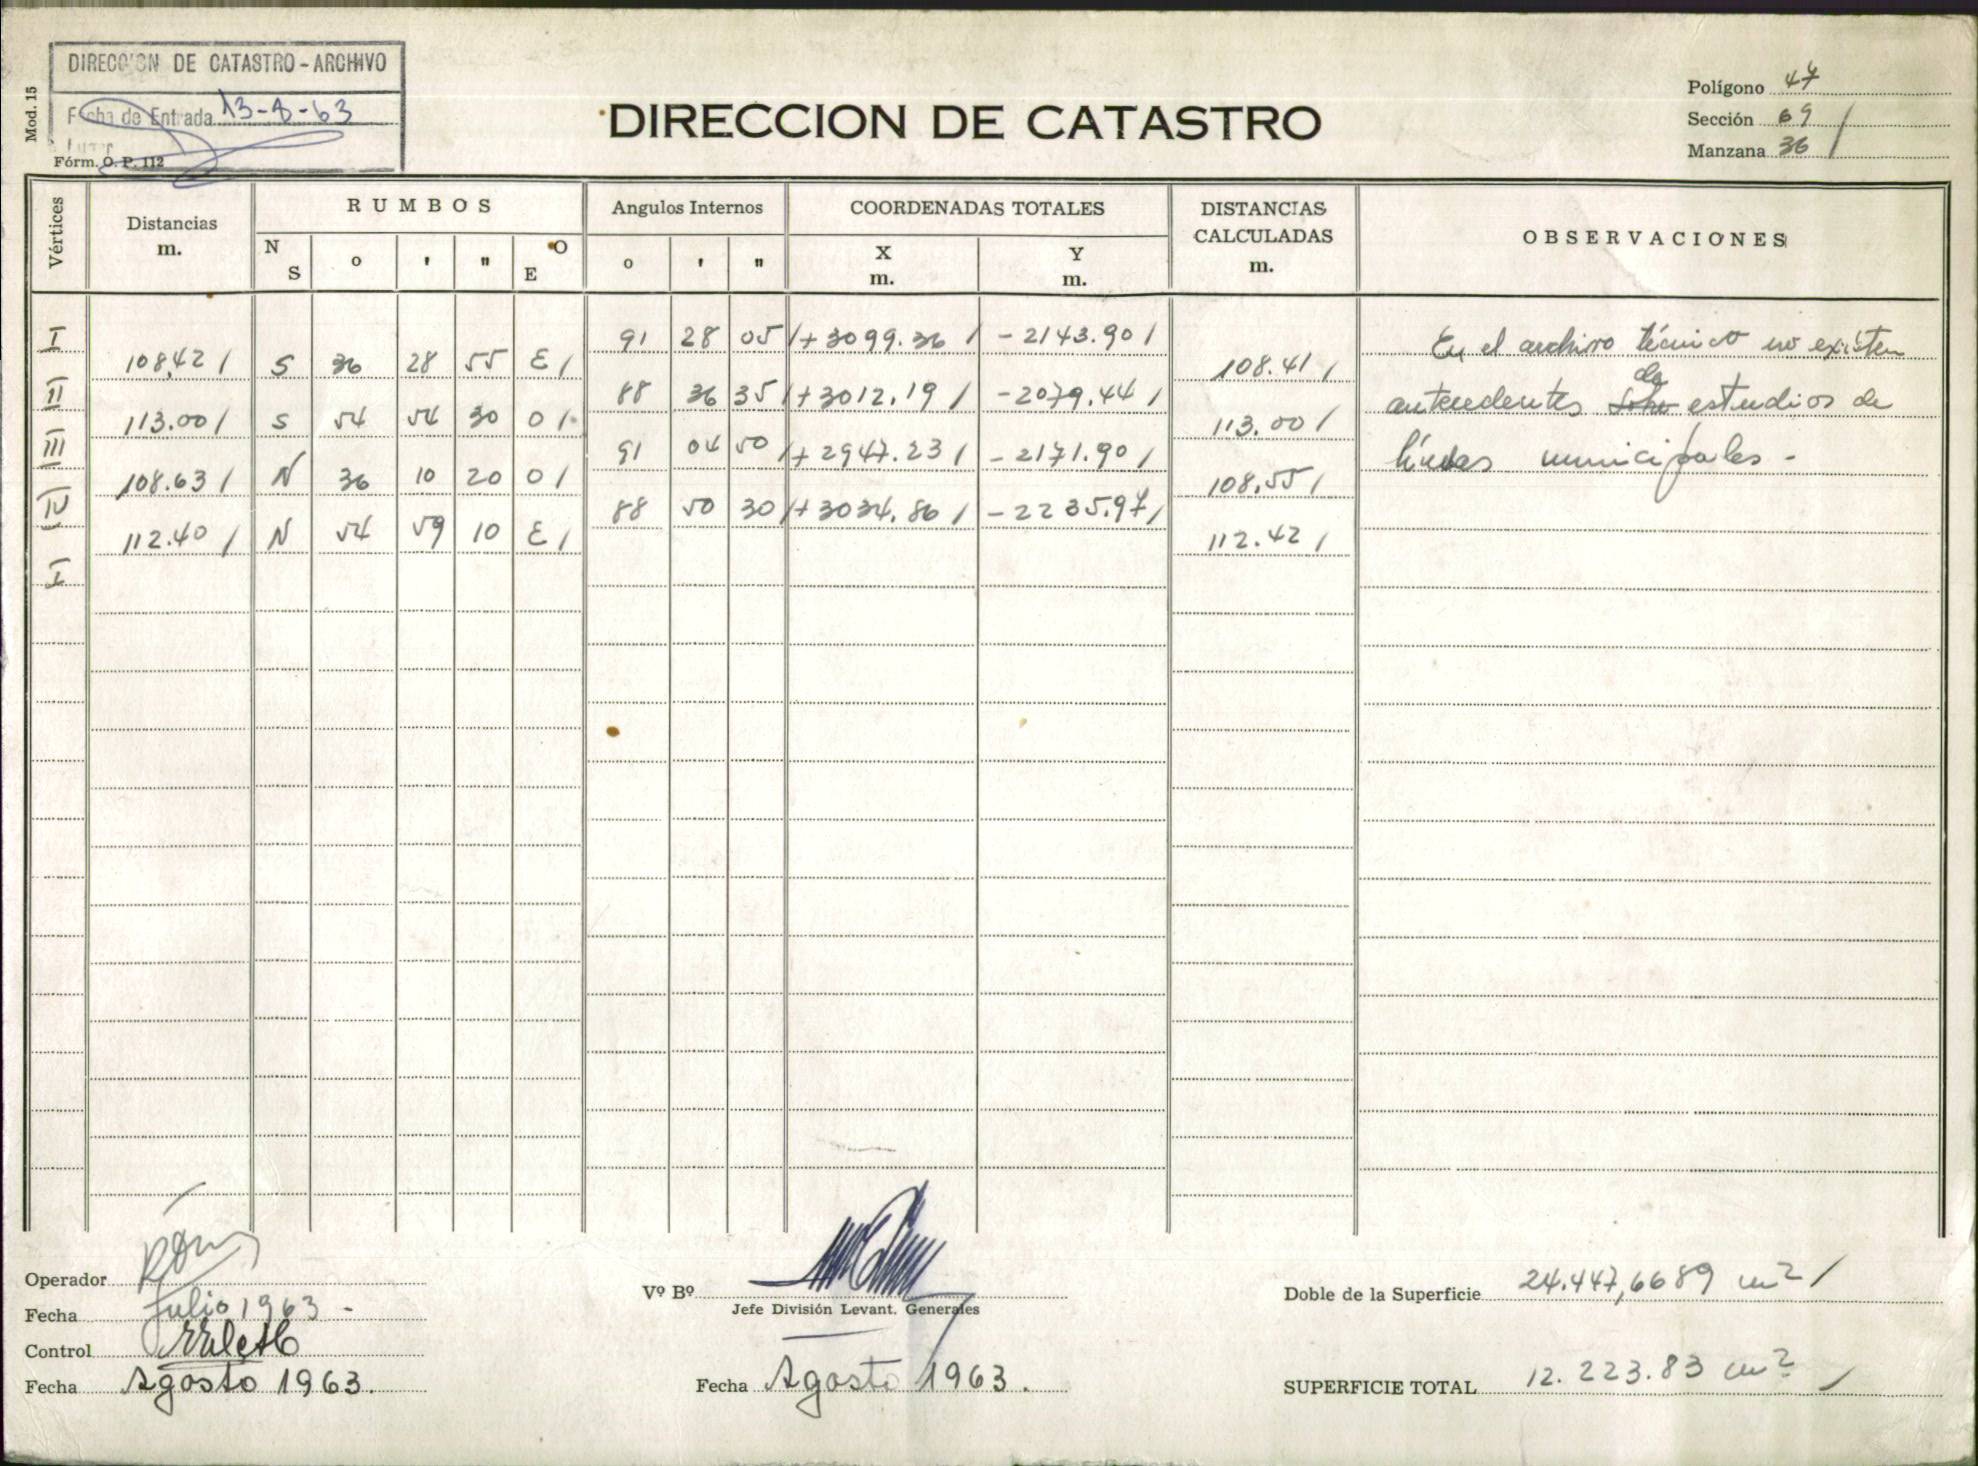 DIRECCION DE CATASTRO - ARCHIVO
Fecha de Entrada 13-8-63
Mod. 15
Fórm. O. P. 112
DIRECCION DE CATASTRO
Polígono 47
Sección 69 /
Manzana 36 /
Vértices
Distancias m.
RUMBOS
N S o ' " E O
Angulos Internos
o ' "
COORDENADAS TOTALES
X m. Y m.
DISTANCIAS CALCULADAS m.
OBSERVACIONES
I 91 28 05 / + 3099.36 / - 2143.90 /
108.42 / S 36 28 55 E / 108.41 /
II 88 36 35 / + 3012.19 / - 2079.44 /
113.00 / S 54 54 30 O / 113.00 /
III 91 04 50 / + 2947.23 / - 2171.90 /
108.63 / N 36 10 20 O / 108.55 /
IV 88 50 30 / + 3034.86 / - 2235.97 /
112.40 / N 54 59 10 E / 112.42 /
I
En el archivo técnico no existen
antecedentes de estudios de
líneas municipales -
Operador
Fecha Julio 1963 -
Control
Fecha Agosto 1963.
Vº Bº
Jefe División Levant. Generales
Fecha Agosto 1963.
Doble de la Superficie 24.447,6689 m2 /
SUPERFICIE TOTAL 12.223.83 m2 /